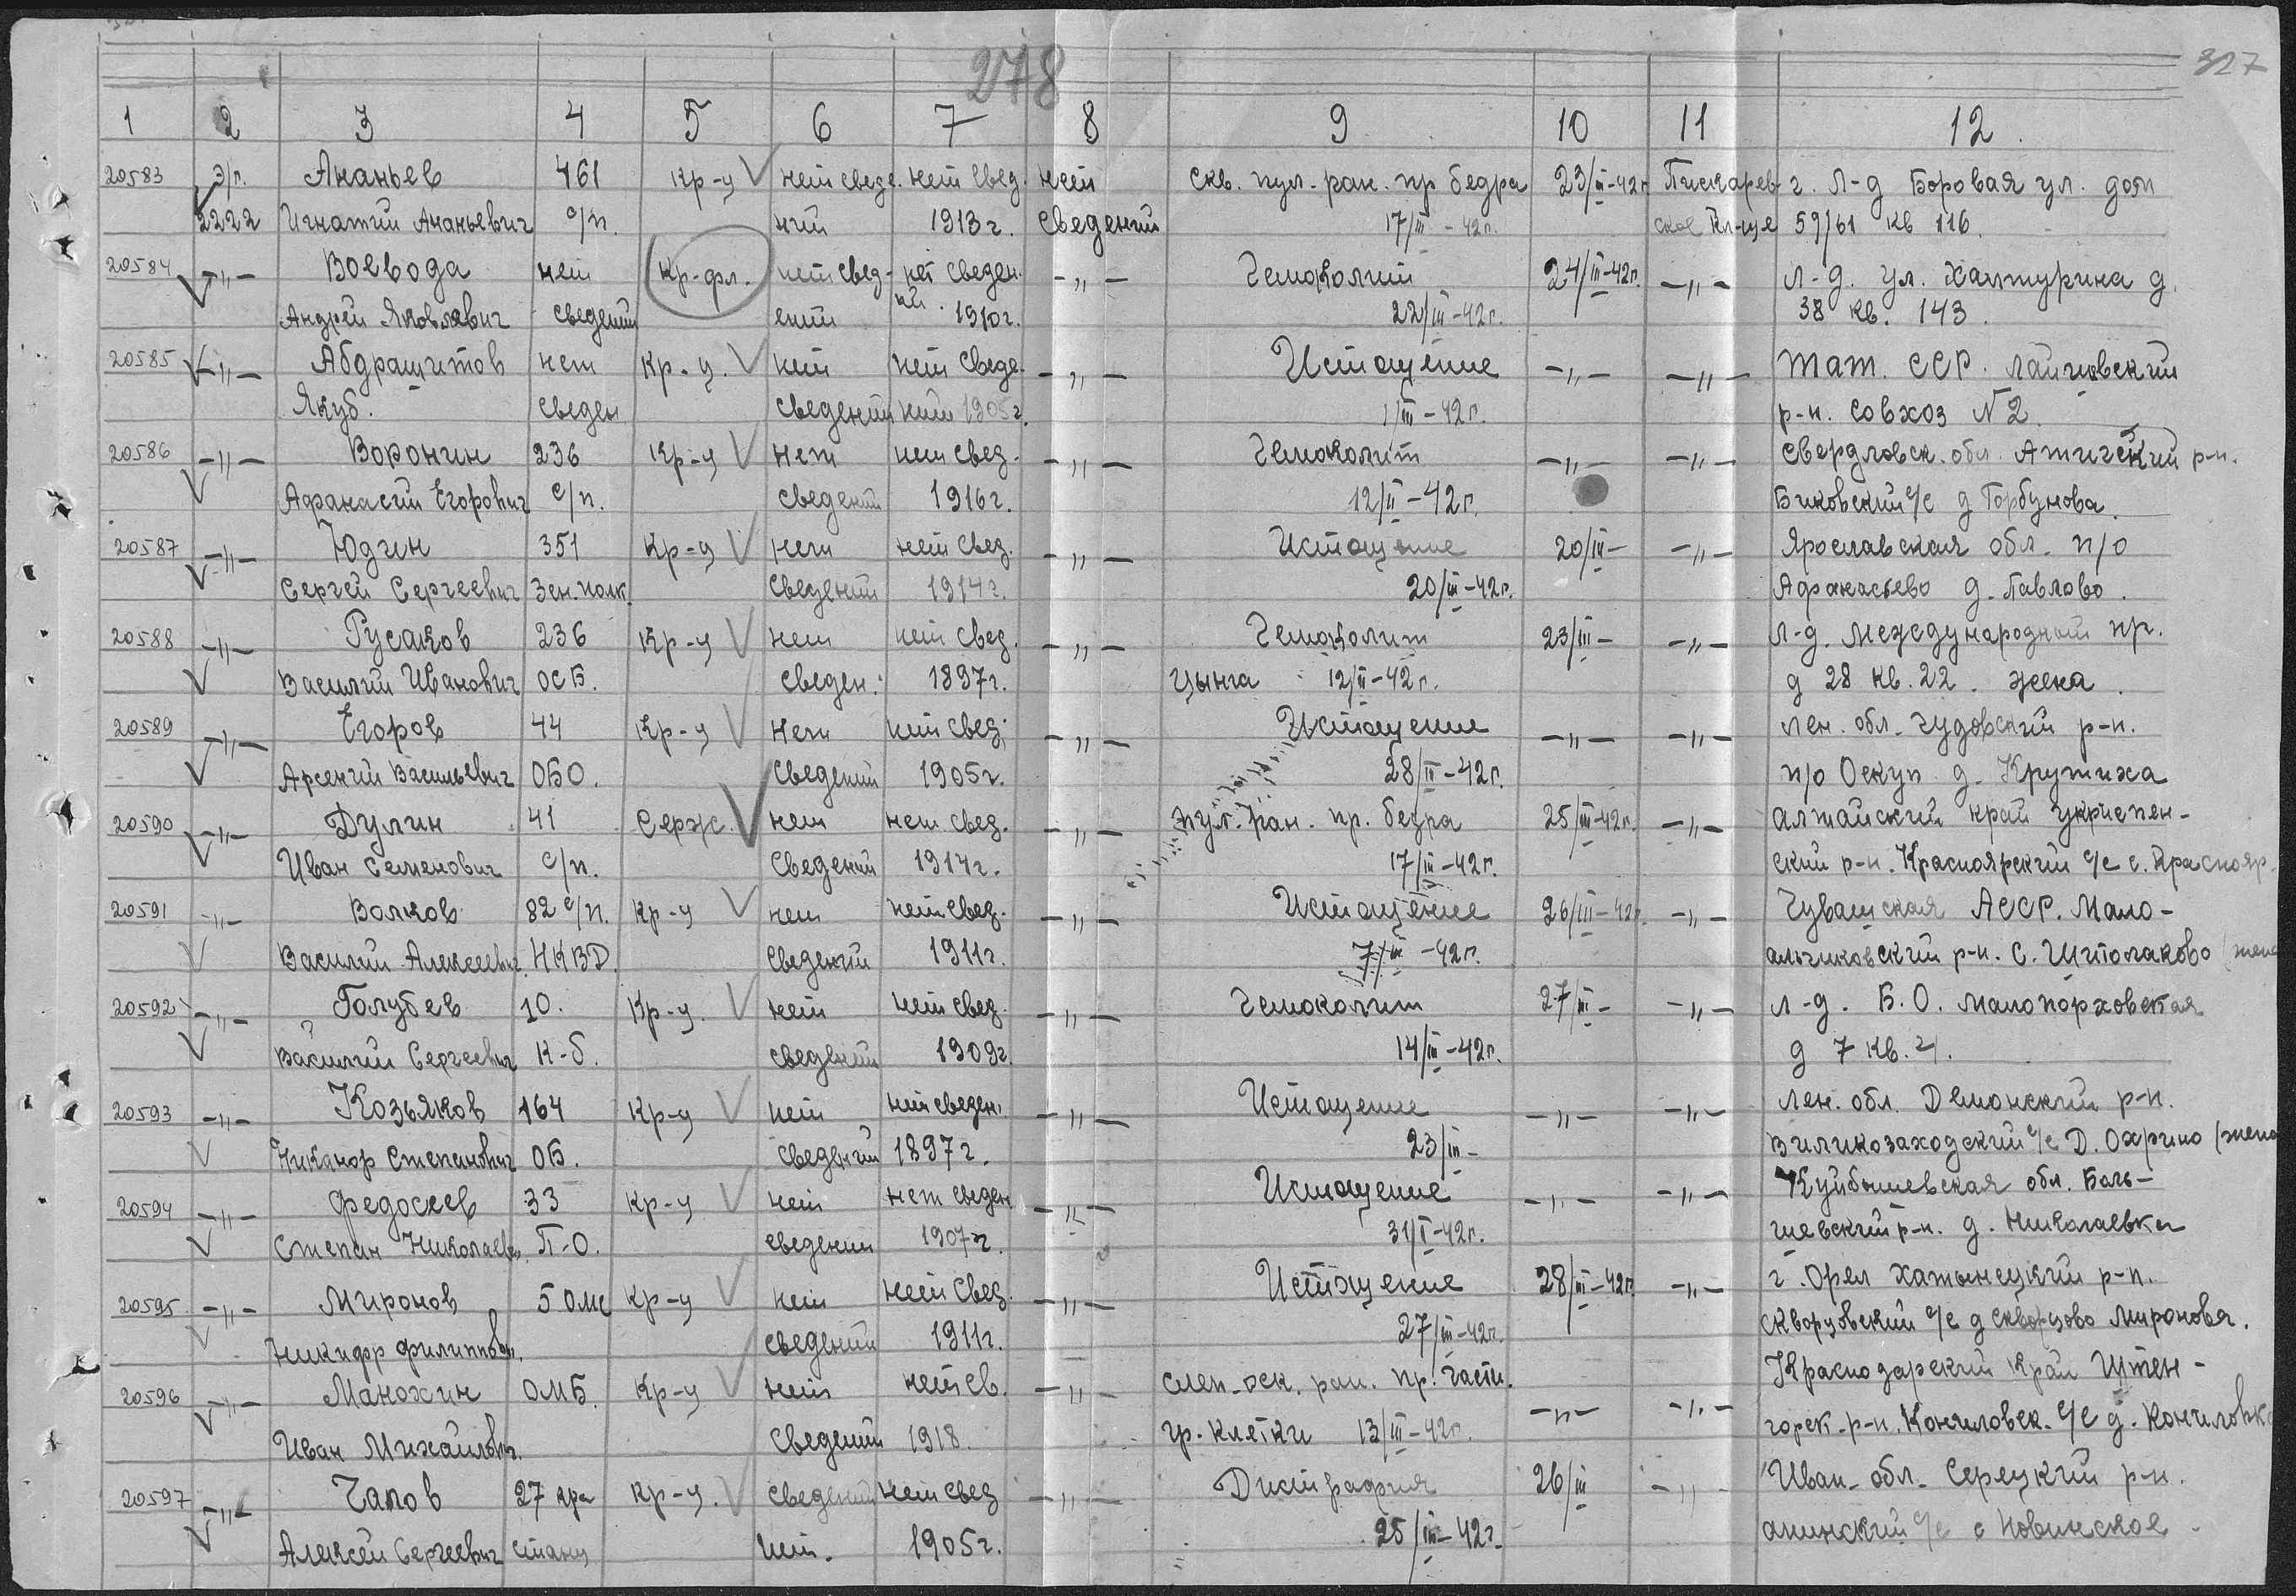 278
327
1 2 3 4 5 6 7 8 9 10 11 12
20583 э/п. Ананьев 461 кр-ц нет сведе. нет свед. нет скв. пул. ран. пр бедра 23/III-42г Пискарев- г. Л-д Боровая ул. дом
2222 Игнатий Ананьевич с/п. ний 1913 г. сведений 17/III-42г. ское кл-ще 59/61 кв 116.
20584 -"- Воевода нет Кр-фл. нет свед- нет сведен. -"- Гемоколит 24/III-42г. -"- Л-д. ул. Халтурина д.
Андрей Яковлевич сведений ений ий. 1910г. 22/III-42г. 38 кв. 143.
20585 -"- Абдрашитов нет Кр-ц. нет нет сведе- -"- Истощение -"- -"- Тат. ССР. Лаишевский
Якуб. сведен сведений ний 1905г. 1/III-42г. р-н. совхоз N2.
20586 -"- Воронин 236 Кр-ц нет нет свед. -"- Гемоколит -"- -"- Свердловск. обл. Ачитский р-н.
Афанасий Егорович с/п. сведений 1916г. 12/II-42г. Биковский с/с д Горбунова.
20587 -"- Юдин 351 Кр-ц нет нет свед. -"- Истощение 20/III- -"- Ярославская обл. п/о
Сергей Сергеевич Зен. полк. сведений 1914г. 20/III-42г. Афанасьево д. Павлово.
20588 -"- Русаков 236 Кр-ц нет нет свед. -"- Гемоколит 23/III- -"- Л-д. Международный пр.
Василий Иванович ОСБ. сведен. 1897г. Цынга 12/II-42г. д 28 кв. 22. жена.
20589 -"- Егоров 44 Кр-ц нет нет свед. -"- Истощение -"- -"- Лен. обл. Чудовский р-н.
Арсений Васильевич ОБО. сведений 1905г. 28/II-42г. п/о Оскуп д. Крутиха
20590 -"- Дулин 41 Серж. нет нет свед. -"- пул. ран. пр. бедра 25/III-42г. -"- Алтайский край
Иван Семенович с/п. сведений 1914г. 17/III-42г. ский р-н. Красноярский с/с с. Краснояр.
20591 -"- Волков 82 с/п. Кр-ц нет нет свед. -"- Истощение 26/III-42г. -"- Чувашская АССР. Мало-
Василий Алексеевич НКВД. сведений 1911г. 7/III-42г. р-н. с. (жена
20592 -"- Голубев 10. Кр-ц. нет нет свед. -"- Гемоколит 27/III- -"- Л-д. Б.О. Малопорховская
Василий Сергеевич К-б. сведений 1909г. 14/III-42г. д 7 кв. 4.
20593 -"- Козьяков 164 Кр-ц нет нет сведен. -"- Истощение -"- -"- Лен. обл. Демонский р-н.
Никанор Степанович ОБ. сведений 1897г. 23/III- Виликозаходский с/с Д. Охрино (жена
20594 -"- Федосеев 33 Кр-ц нет нет сведен -"- Истощение -"- -"- Куйбышевская обл. Боль-
Степан Николаев. П-О. сведений 1907г. 31/I-42г. шевский р-н. д. Николаевка
20595 -"- Миронов 5 омс Кр-ц нет нет свед. -"- Истощение 28/III-42г. -"- г. Орел Хатынецкий р-н.
Никифр Филиппович. сведений 1911г. 27/III-42г. Скворцовский с/с д Скворцово Миронова.
20596 -"- Манохин ОМБ. Кр-ц нет нет св. -"- слеп-оск. ран. пр. части. -"- -"- Краснодарский край Штен-
Иван Михайлович. сведений 1918. гр. клетки 13/III-42г. горск. р-н. Кончиловск. с/с д. Кончиловка
20597 -"- Чапов 27 кра Кр-ц. сведений нет свед -"- Дистрафия 26/III -"- Иван. обл. Серецкий р-н.
Алексей Сергеевич станц нет. 1905г. 25/III-42г. анинский с/с с Новинское.